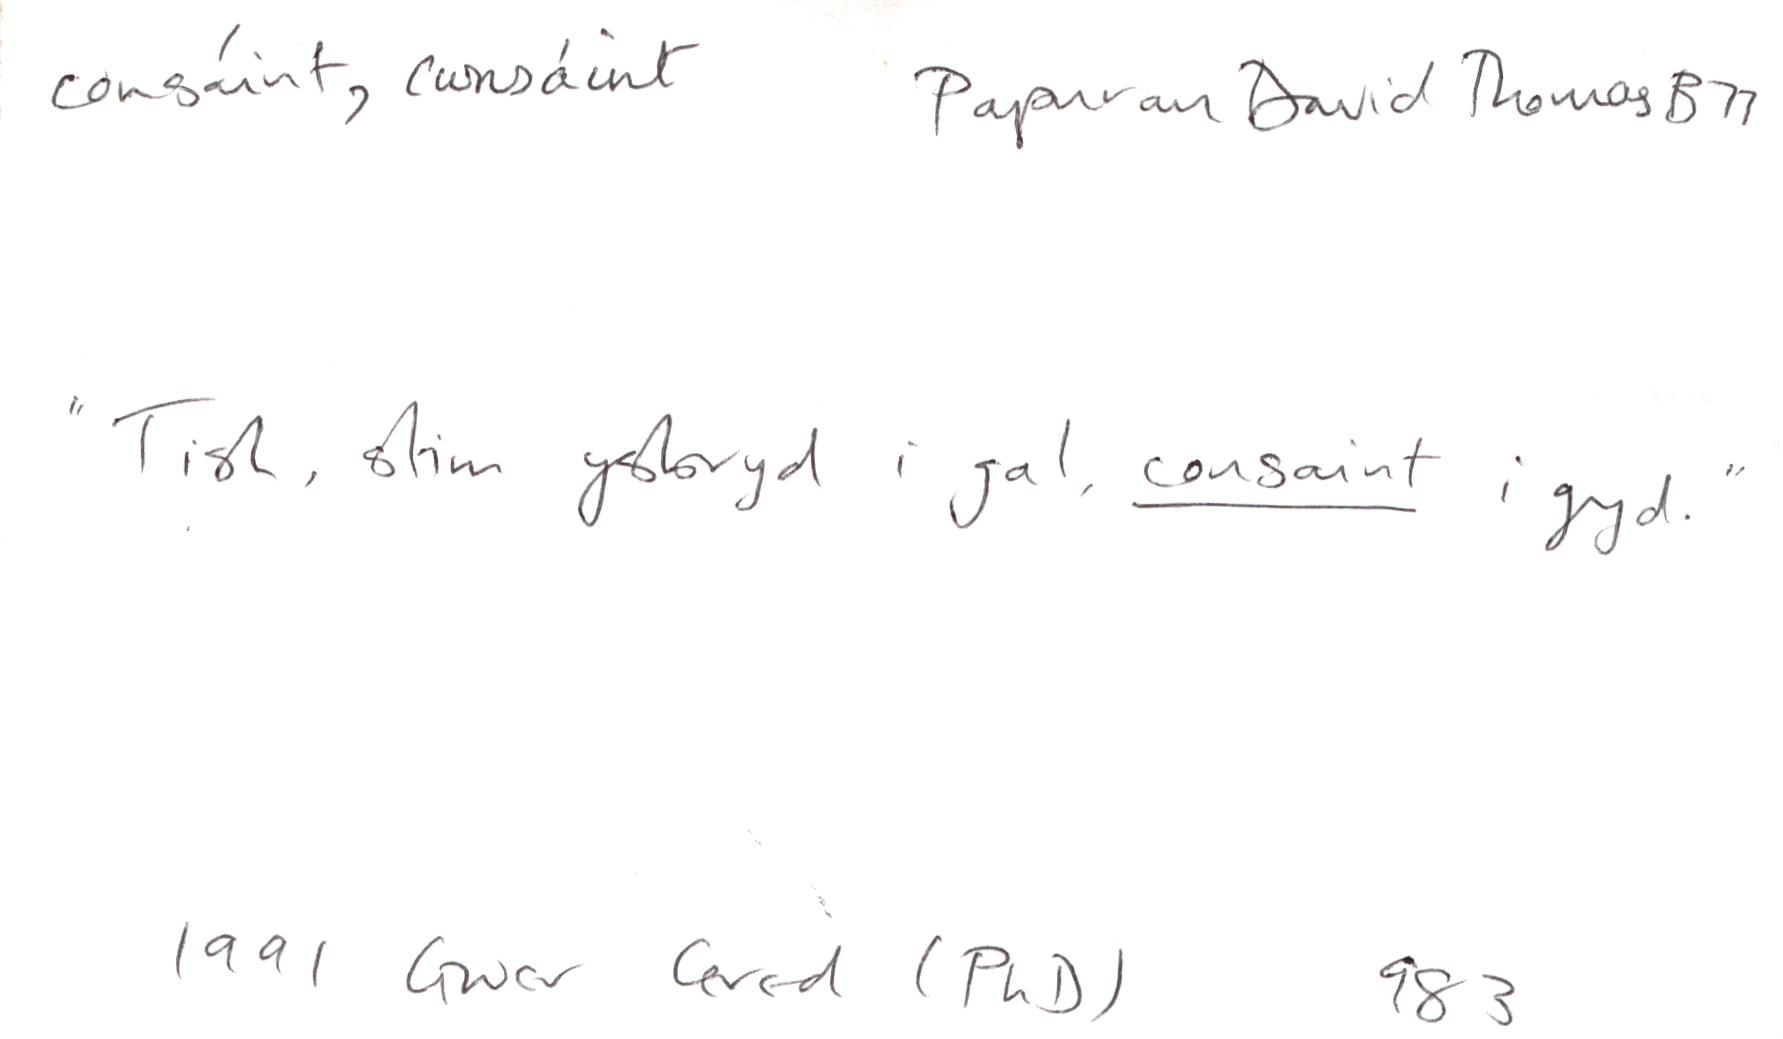 consáint, cwnsáint Papurau David Thomas B77
"Tish, stim ysbryd i gal, consaint i gyd."
1991 Gwer Cered (PhD) 983